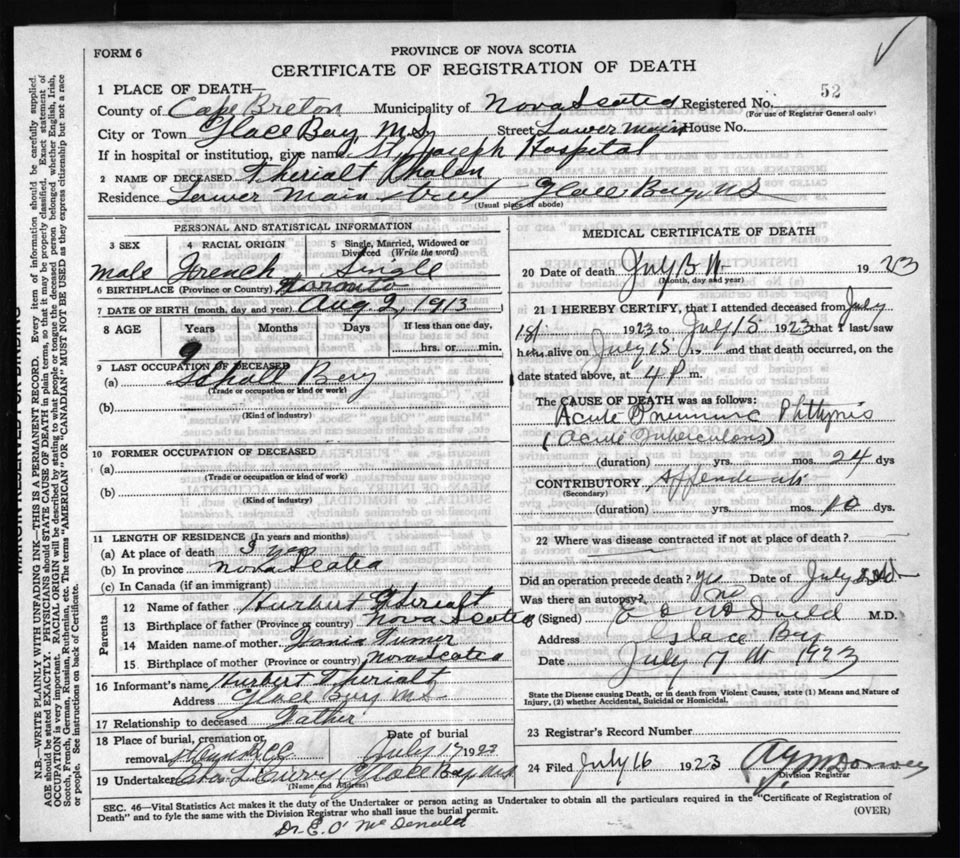 FORM 6
PROVINCE OF NOVA SCOTIA
CERTIFICATE OF REGISTRATION OF DEATH
52
1 PLACE OF DEATH—
County of Cape Breton Municipality of Nova Scotia Registered No.
(For use of Registrar General only)
City or Town Glace Bay N.S. Street Lower Main House No.
If in hospital or institution, give name St. Joseph Hospital
2 NAME OF DECEASED Therialt
Residence Lower Main Street Glace Bay N S
(Usual place of abode)
PERSONAL AND STATISTICAL INFORMATION
3 SEX 4 RACIAL ORIGIN 5 Single, Married, Widowed or Divorced (Write the word)
male French Single
6 BIRTHPLACE (Province or Country) Toronto
7 DATE OF BIRTH (month, day and year) Aug 2, 1913
8 AGE Years Months Days If less than one day,
9 hrs. or min.
9 LAST OCCUPATION OF DECEASED
(a) School Boy
(Trade or occupation or kind of work)
(b)
(Kind of industry)
10 FORMER OCCUPATION OF DECEASED
(a)
(Trade or occupation or kind of work)
(b)
(Kind of industry)
11 LENGTH OF RESIDENCE (In years and months)
(a) At place of death
(b) In province Nova Scotia
(c) In Canada (if an immigrant)
Parents
12 Name of father Hurbert Therialt
13 Birthplace of father (Province or country) Nova Scotia
14 Maiden name of mother Turner
15 Birthplace of mother (Province or country) Nova Scotia
16 Informant's name Hurbert Therialt
Address Glace Bay N S
17 Relationship to deceased Father
18 Place of burial, cremation or
removal July 17 1923
19 Undertaker Curry Glace Bay N.S.
(Name and Address)
MEDICAL CERTIFICATE OF DEATH
20 Date of death July 1923
(Month, day and year)
21 I HEREBY CERTIFY, that I attended deceased from July
1923 to July 15 1923 that I last saw
alive on July 15, and that death occurred, on the
date stated above, at 4 P m.
The CAUSE OF DEATH was as follows:
Acute Pneumonic Phthysis
(Acute Tuberculosis)
(duration) yrs. mos. 24 dys
CONTRIBUTORY
(Secondary)
(duration) yrs. mos. 10 dys.
22 Where was disease contracted if not at place of death?
Did an operation precede death? yes Date of July
Was there an autopsy? no
(Signed) M.D.
Address Glace Bay
Date July 17 1923
State the Disease causing Death, or in death from Violent Causes, state (1) Means and Nature of
Injury, (2) whether Accidental, Suicidal or Homicidal.
23 Registrar's Record Number
24 Filed July 16 1923
Division Registrar
SEC. 46—Vital Statistics Act makes it the duty of the Undertaker or person acting as Undertaker to obtain all the particulars required in the "Certificate of Registration of
Death" and to fyle the same with the Division Registrar who shall issue the burial permit. (OVER)
Dr. E. O' McDonald
MARGIN RESERVED FOR BINDING
N.B.—WRITE PLAINLY WITH UNFADING INK—THIS IS A PERMANENT RECORD. Every item of information should be carefully supplied.
AGE should be stated EXACTLY. PHYSICIANS should STATE CAUSE OF DEATH in plain terms, so that it may be properly classified. Exact statement of
OCCUPATION is very important. RACIAL ORIGIN will be described by stating to what people or tongue the deceased person belonged whether English, Irish,
Scotch, French, German, Russian, Ruthenian, etc. The terms "AMERICAN" OR "CANADIAN" MUST NOT BE USED as they express citizenship but not a race
or people. See instructions on back of Certificate.